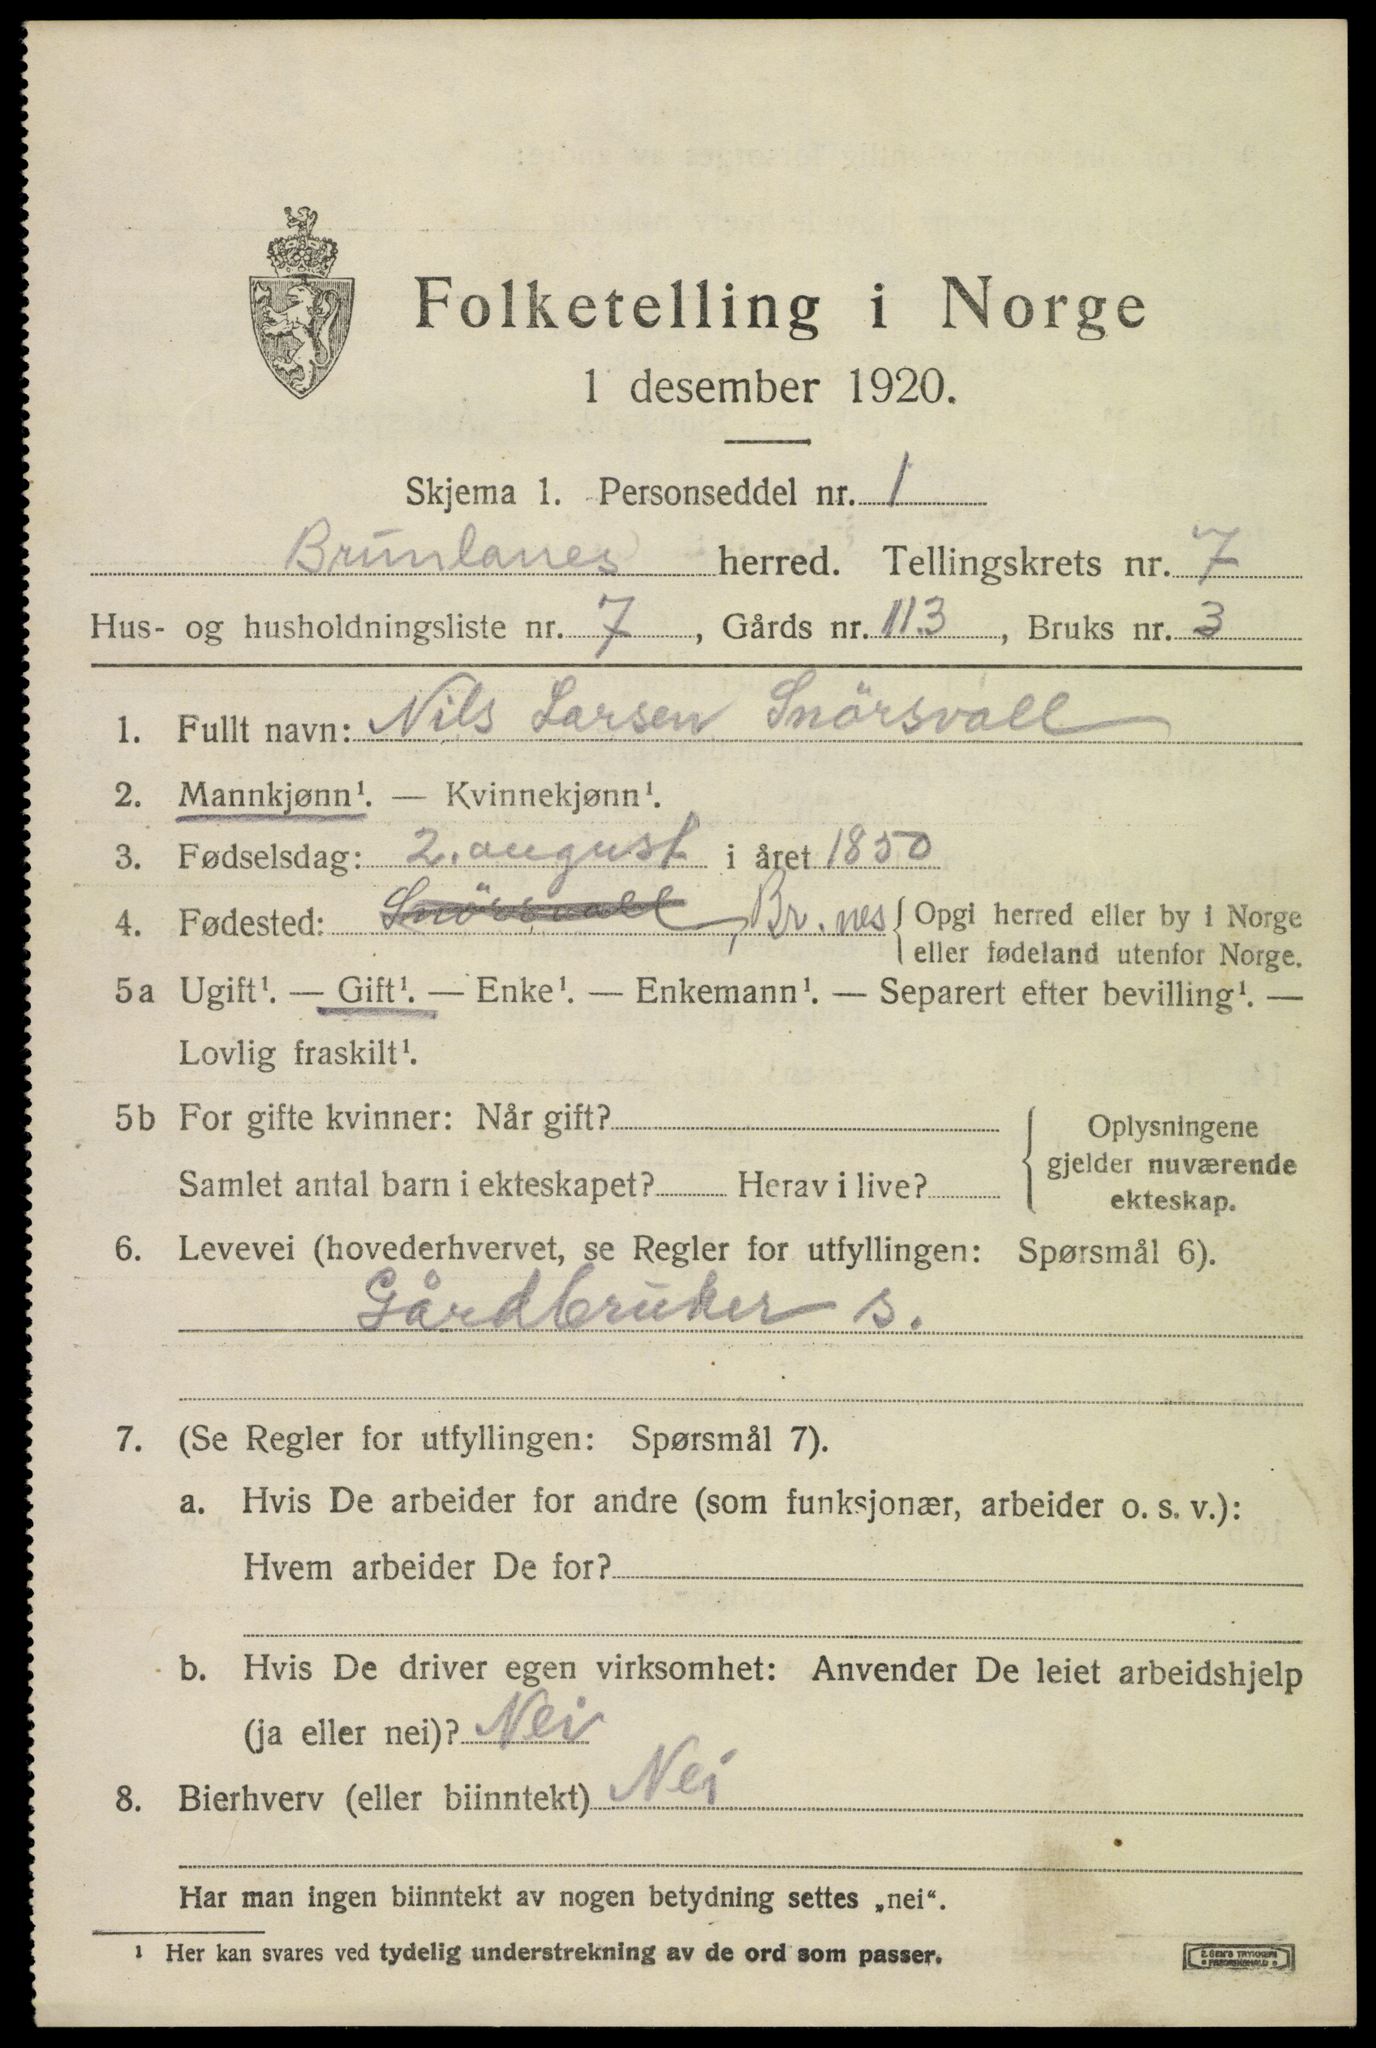 Folketelling i Norge
1 desember 1920.
Skjema 1. Personseddel nr. 1
Brunlanes herred. Tellingskrets nr. 7
Hus- og husholdningsliste nr. 7, Gårds nr. 113, Bruks nr. 3
1. Fullt navn: Nils Larsen Snörsvall
2. Mannkjønn¹. — Kvinnekjønn¹.
3. Fødselsdag: 2. august i året 1850
4. Fødested: Snörsvall, Br.nes { Opgi herred eller by i Norge
eller fødeland utenfor Norge.
5a Ugift¹. — Gift¹. — Enke¹. — Enkemann¹. — Separert efter bevilling¹. —
Lovlig fraskilt¹.
5b For gifte kvinner: Når gift?
Samlet antal barn i ekteskapet? Herav i live?
Oplysningene
gjelder nuværende
ekteskap.
6. Levevei (hovederhvervet, se Regler for utfyllingen: Spørsmål 6).
Gårdbruker s.
7. (Se Regler for utfyllingen: Spørsmål 7).
a. Hvis De arbeider for andre (som funksjonær, arbeider o. s. v.):
Hvem arbeider De for?
b. Hvis De driver egen virksomhet: Anvender De leiet arbeidshjelp
(ja eller nei)? Nei
8. Bierhverv (eller biinntekt) Nei
Har man ingen biinntekt av nogen betydning settes „nei“.
¹ Her kan svares ved tydelig understrekning av de ord som passer.